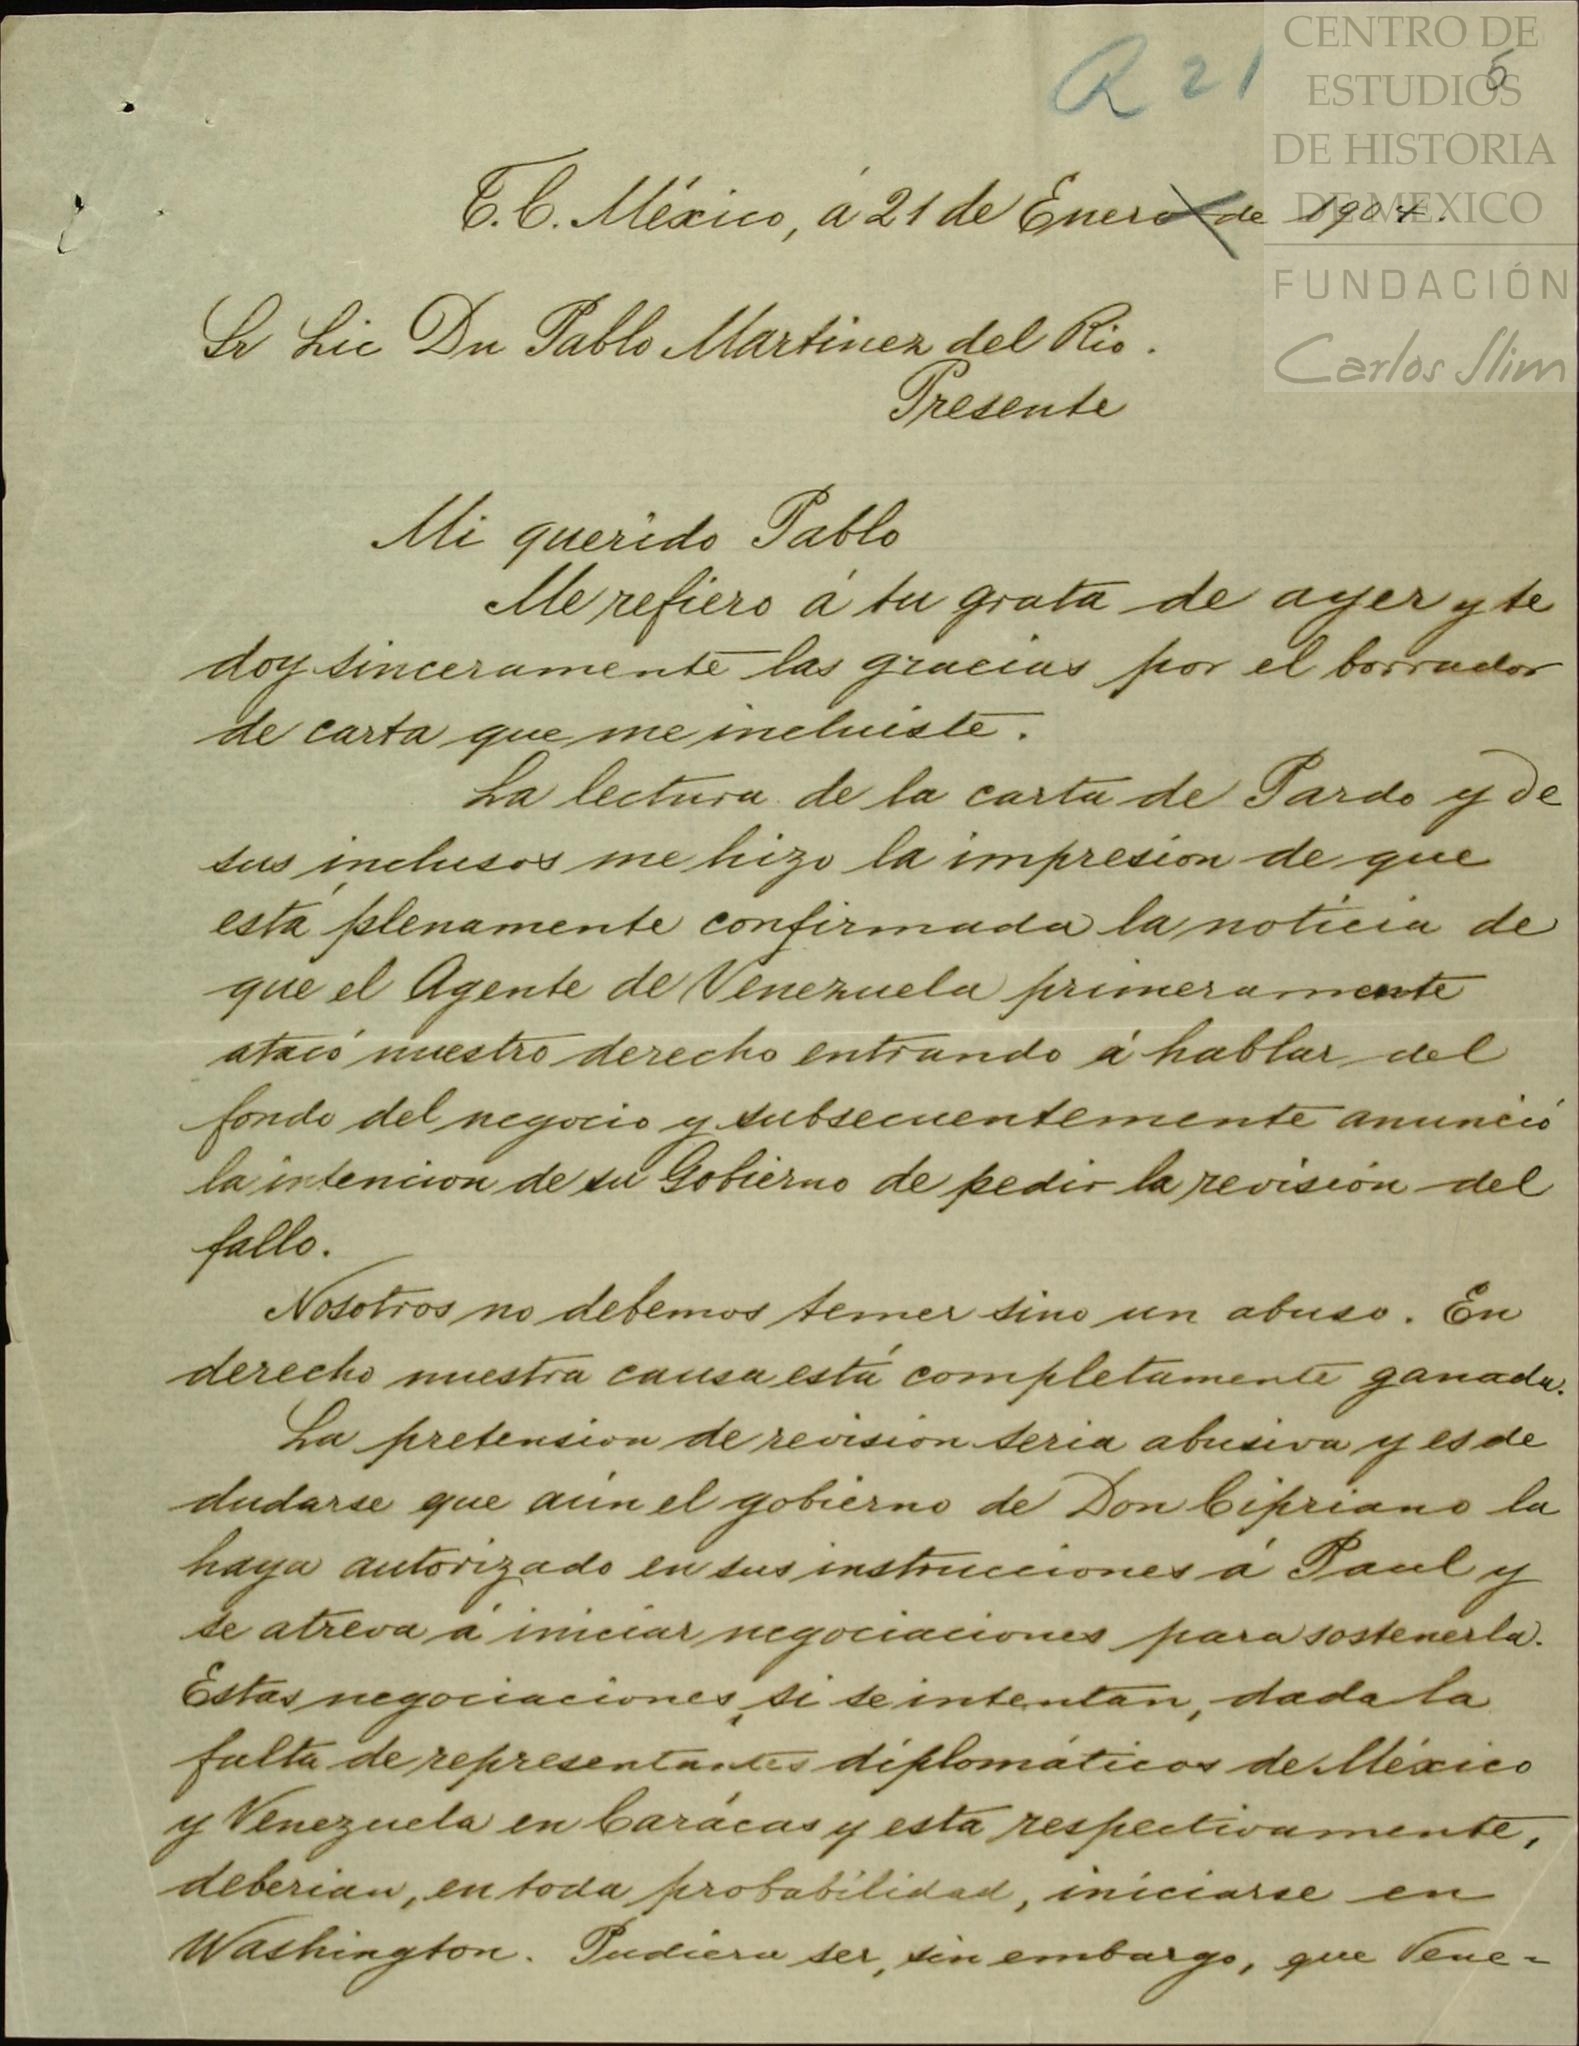 R 21
CENTRO DE
ESTUDIOS
DE HISTORIA
DE MEXICO
FUNDACIÓN
Carlos Slim
6
T. C. México, á 21 de Enero de 1904.
Sr Lic Dn Pablo Martinez del Rio.
Presente
Mi querido Pablo
Me refiero á tu grata de ayer y te
doy sinceramente las gracias por el borrador
de carta que me incluiste.
La lectura de la carta de Pardo y de
sus inclusos me hizo la impresion de que
está plenamente confirmada la noticia de
que el Agente de Venezuela primeramente
atacó nuestro derecho entrando á hablar del
fondo del negocio y subsecuentemente anunció
la intencion de su Gobierno de pedir la revisión del
fallo.
Nosotros no debemos temer sino un abuso. En
derecho nuestra causa está completamente ganada.
La pretension de revision seria abusiva y es de
dudarse que aún el gobierno de Don Cipriano la
haya autorizado en sus instrucciones á Paul y
se atreva á iniciar negociaciones para sostenerla.
Estas negociaciones, si se intentan, dada la
falta de representantes diplomáticos de México
y Venezuela en Carácas y esta respectivamente,
deberian, en toda probabilidad, iniciarse en
Washington. Pudiera ser, sin embargo, que Vene-